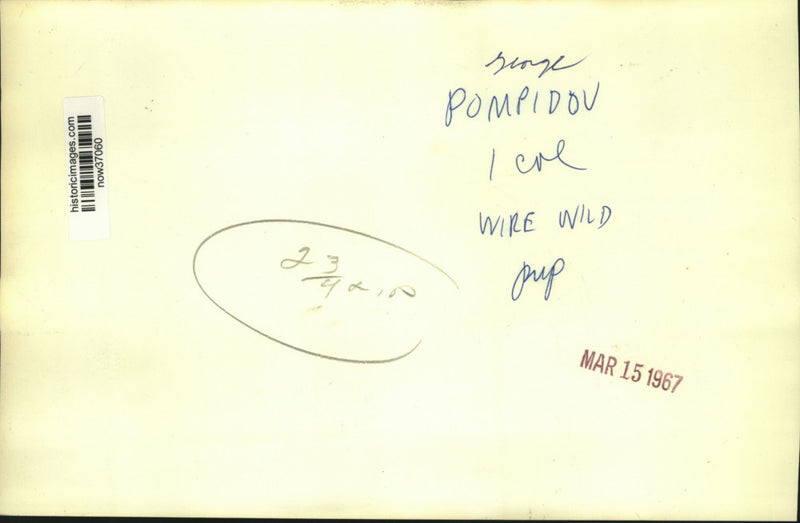 George
POMPIDOU
1 col
WIRE WILD
pup
historicimages.com
now37060
2 3/4 x
MAR 15 1967